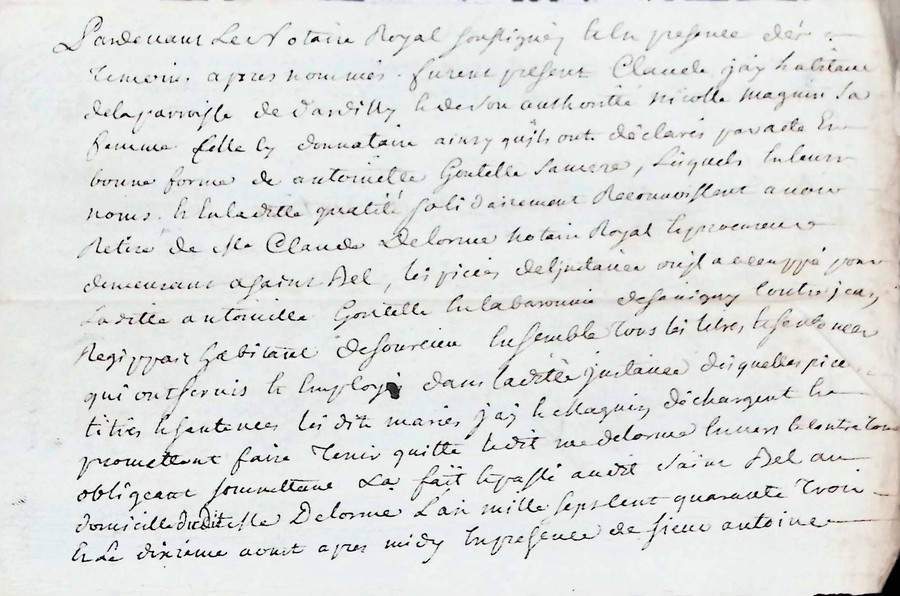 Pardevant Le Notaire Royal soussigney & En presence dés
temoins apres nommés. furent present Claude jay habitant
dela parroisse de dardilly & de son authorité nicolle magnin sa
femme Celle cy donnataire ainsy quils ont déclarés par acte En
bonne forme de antoinette Goutelle sa mere, Lesquels En leurs
noms. & En la ditte qualité solidairement Reconnoissent avoir
Retiré de Me Claude Delorme Notaire Royal & procureur
demeurant a saint Bel, les pieces del'jnstance ou il a occuppé pour
La ditte antoinette Goutelle En la baronnie de savigny Contre jean
habitant de sourcieu Ensemble tous les titres & sentences
qui ont servis & Employé dans la ditte jnstance desquelles piece
titres & sentences les dit mariés jay & Magnin déchargent &
promettent faire tenir quitte ledit me delorme Envers & contre tous
obligeant soumettant La fait & passé audit saint Bel au
domicille dudit Me Delorme L'an mille sept Cent quarante trois
& Le dixieme aout apres midy En presence de sieur antoine